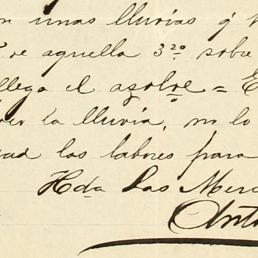 unas lluvias q
de aquella 3ª sobre
llega el azolve = E
la lluvia, no lo
las labores para
Hda Las Merc
Anto